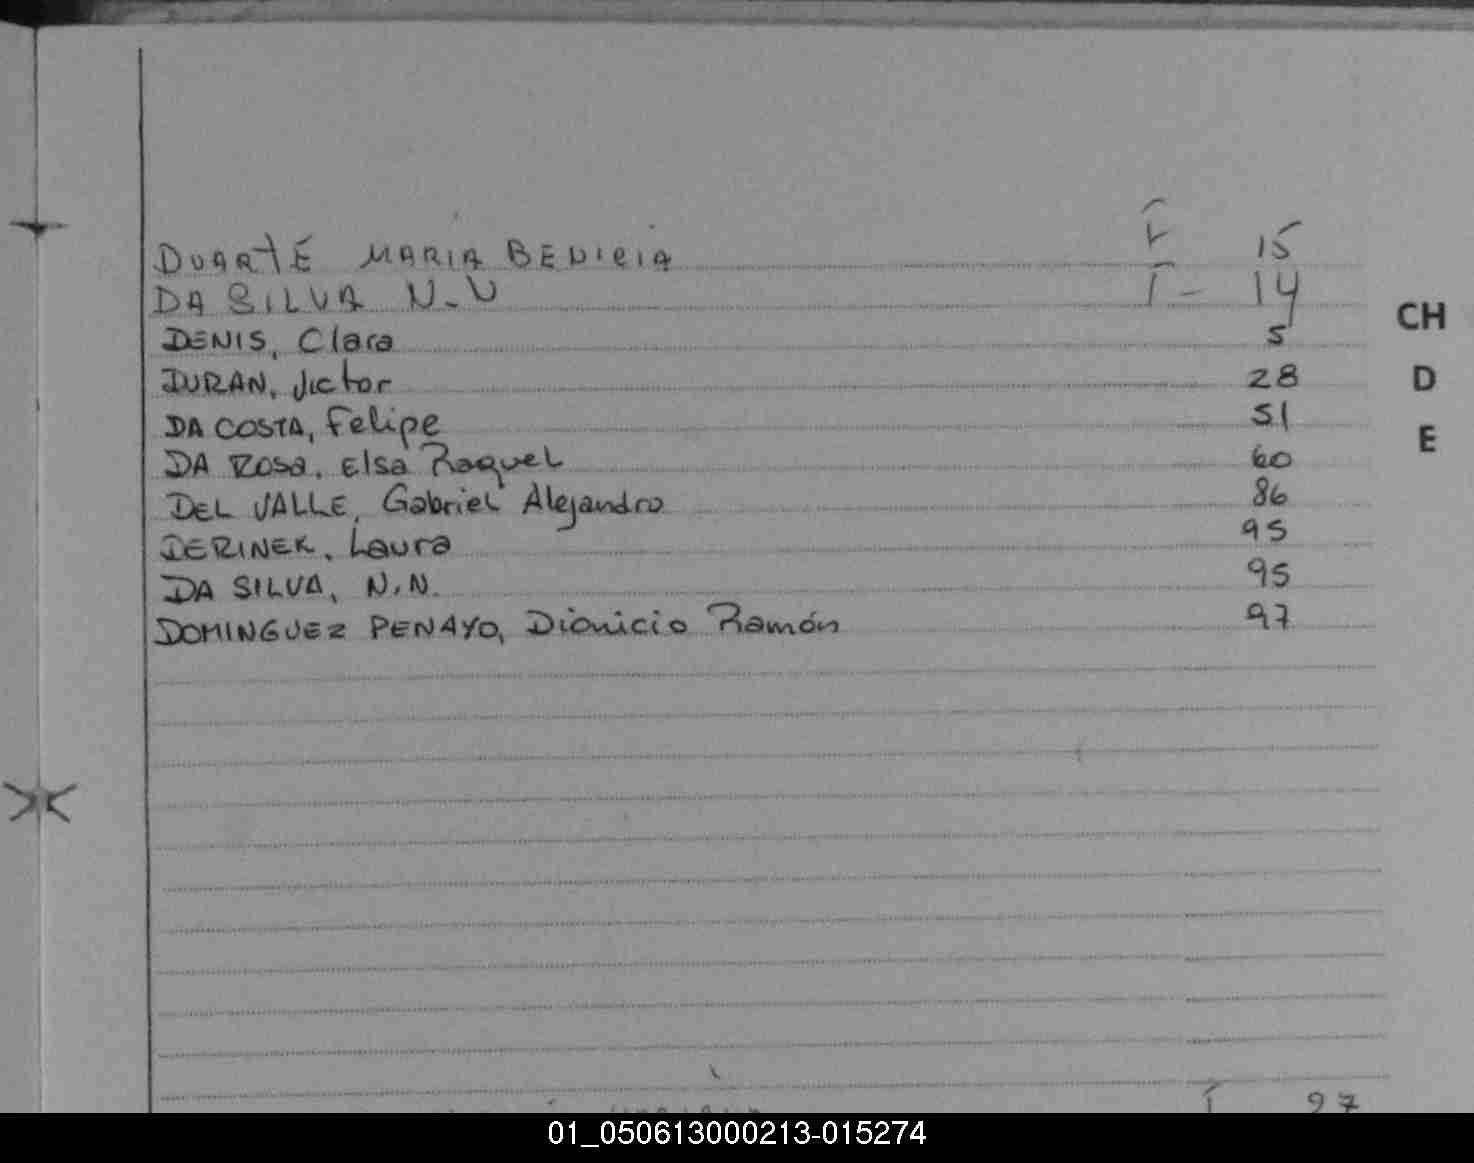 DUARTE MARIA BENICIA F 15
DA SILVA N-N F- 14
DENIS, Clara 5
DURAN, Victor 28
DA COSTA, Felipe 51
DA ROSA, Elsa Raquel 60
DEL VALLE, Gabriel Alejandro 86
DERINEK, Laura 95
DA SILVA, N.N. 95
DOMINGUEZ PENAYO, Dionicio Ramón 97
CH
D
E
97
01_050613000213-015274